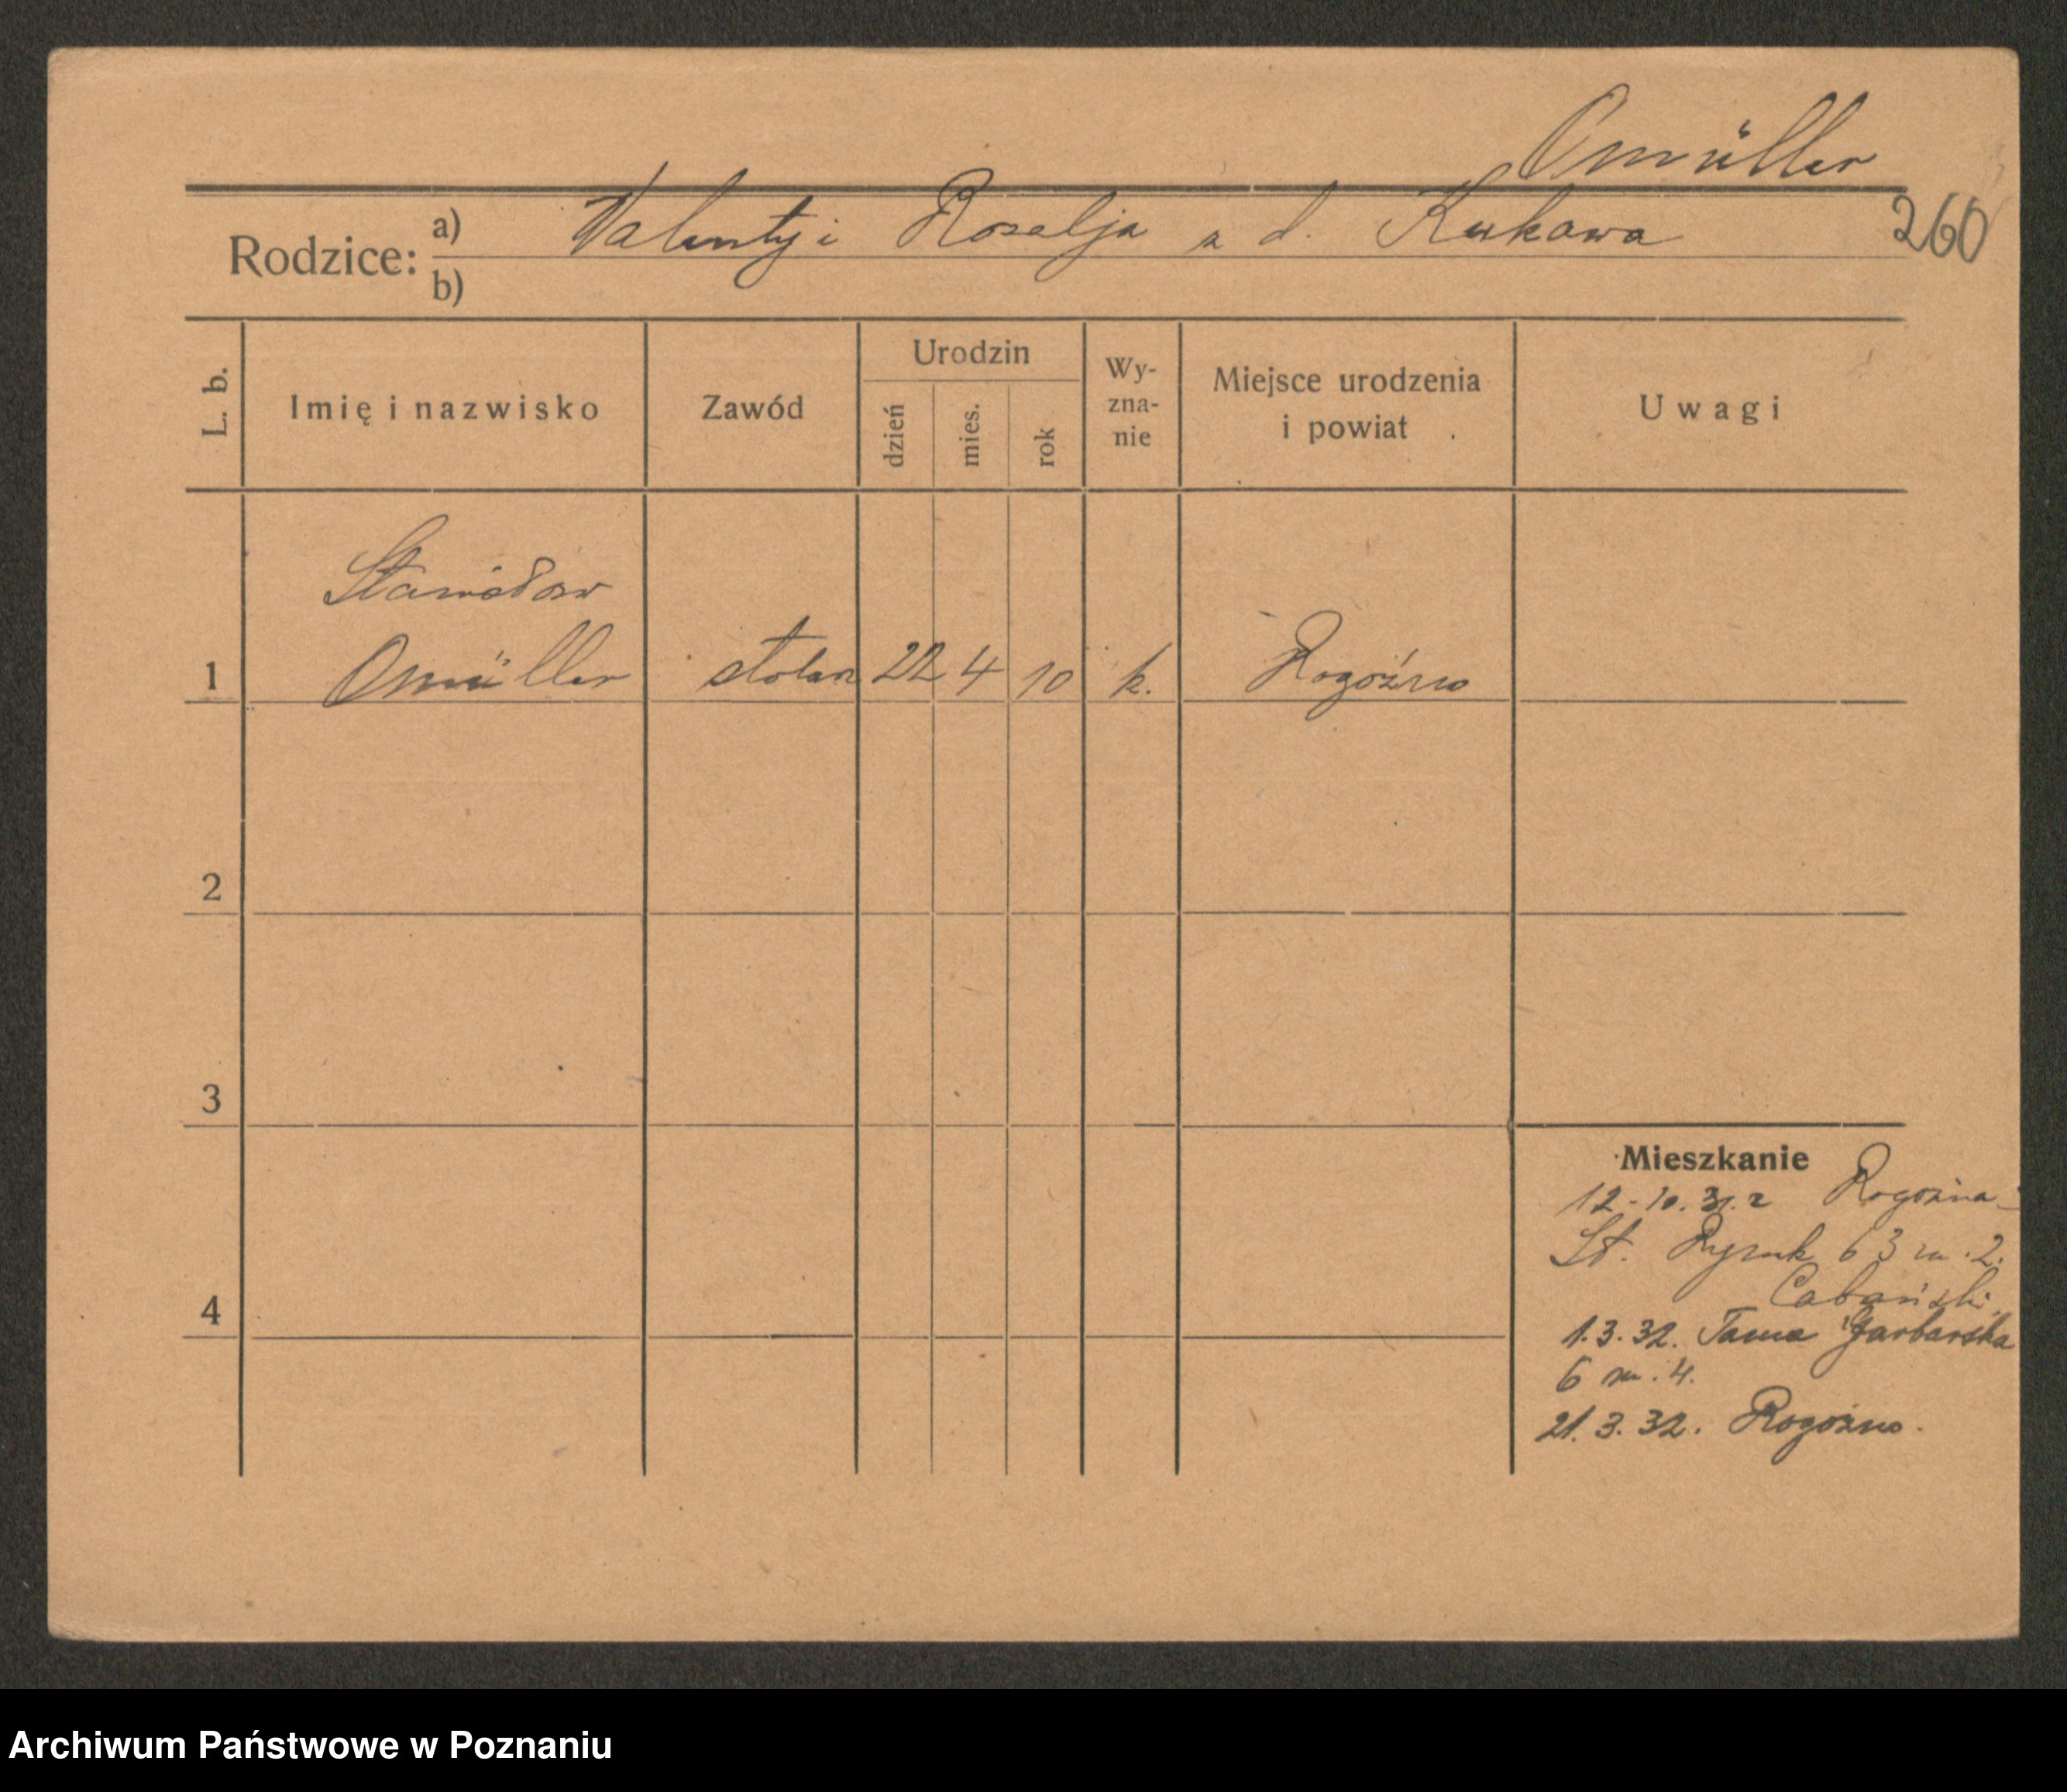 Omüller
260
Rodzice: a) Walenty i Rozalja z d. Kukawa
b)
L. b. Imię i nazwisko Zawód Urodzin dzień mies. rok Wy-zna-nie Miejsce urodzenia i powiat Uwagi
Stanisław
1 Omüller stolarz 22 4 10 k. Rogoźno
2
3
4
Mieszkanie
12-10.31. z Rogoźna
St. Rynek 63 m. 2.
Cabański.
1.3.32. Tama Garbarska
6 m. 4.
21.3.32. Rogoźno.
Archiwum Państwowe w Poznaniu